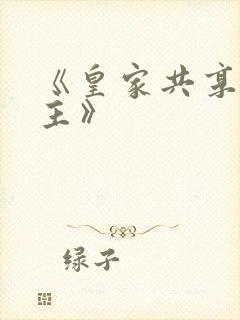 《皇家共享
主》
绿子